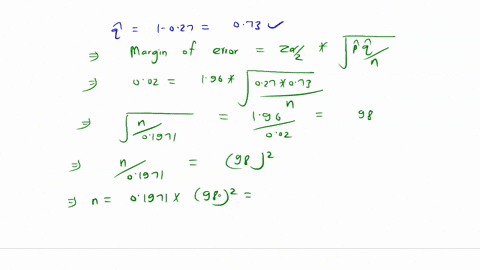 q̂ = 1-0.27 = 0.73 ✓
⇒ Margin of error = Zα/2 * √(p̂ q̂/n)
⇒ 0.02 = 1.96 * √(0.27*0.73/n)
⇒ √(n/0.1971) = 1.96/0.02 = 98
⇒ n/0.1971 = (98)²
⇒ n = 0.1971 × (98)² =